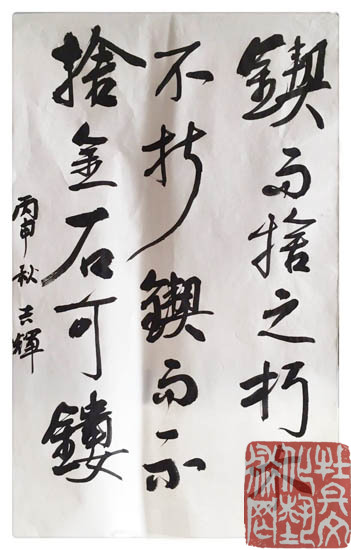 鍥而捨之朽
不折鍥而不
捨金石可鏤
丙申秋吉輝